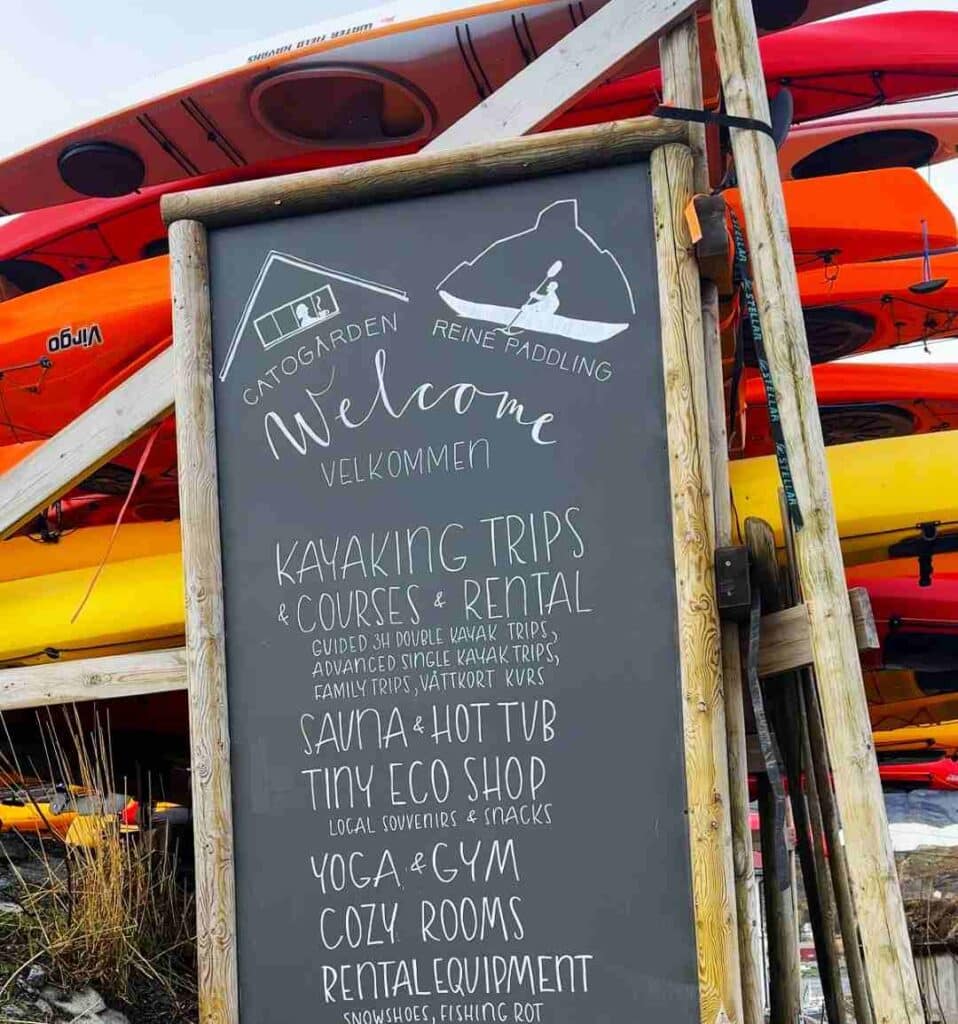 WATER FIELD KAYAKS
Virgo
STELLAR
STELLAR
STELLAR
CATOGÅRDEN
REINE PADDLING
Welcome
VELKOMMEN
KAYAKING TRIPS
& COURSES & RENTAL
GUIDED 3H DOUBLE KAYAK TRIPS,
ADVANCED SINGLE KAYAK TRIPS,
FAMILY TRIPS, VÅTTKORT KURS
SAUNA & HOT TUB
TINY ECO SHOP
LOCAL SOUVENIRS & SNACKS
YOGA & GYM
COZY ROOMS
RENTAL EQUIPMENT
SNOWSHOES, FISHING ROT